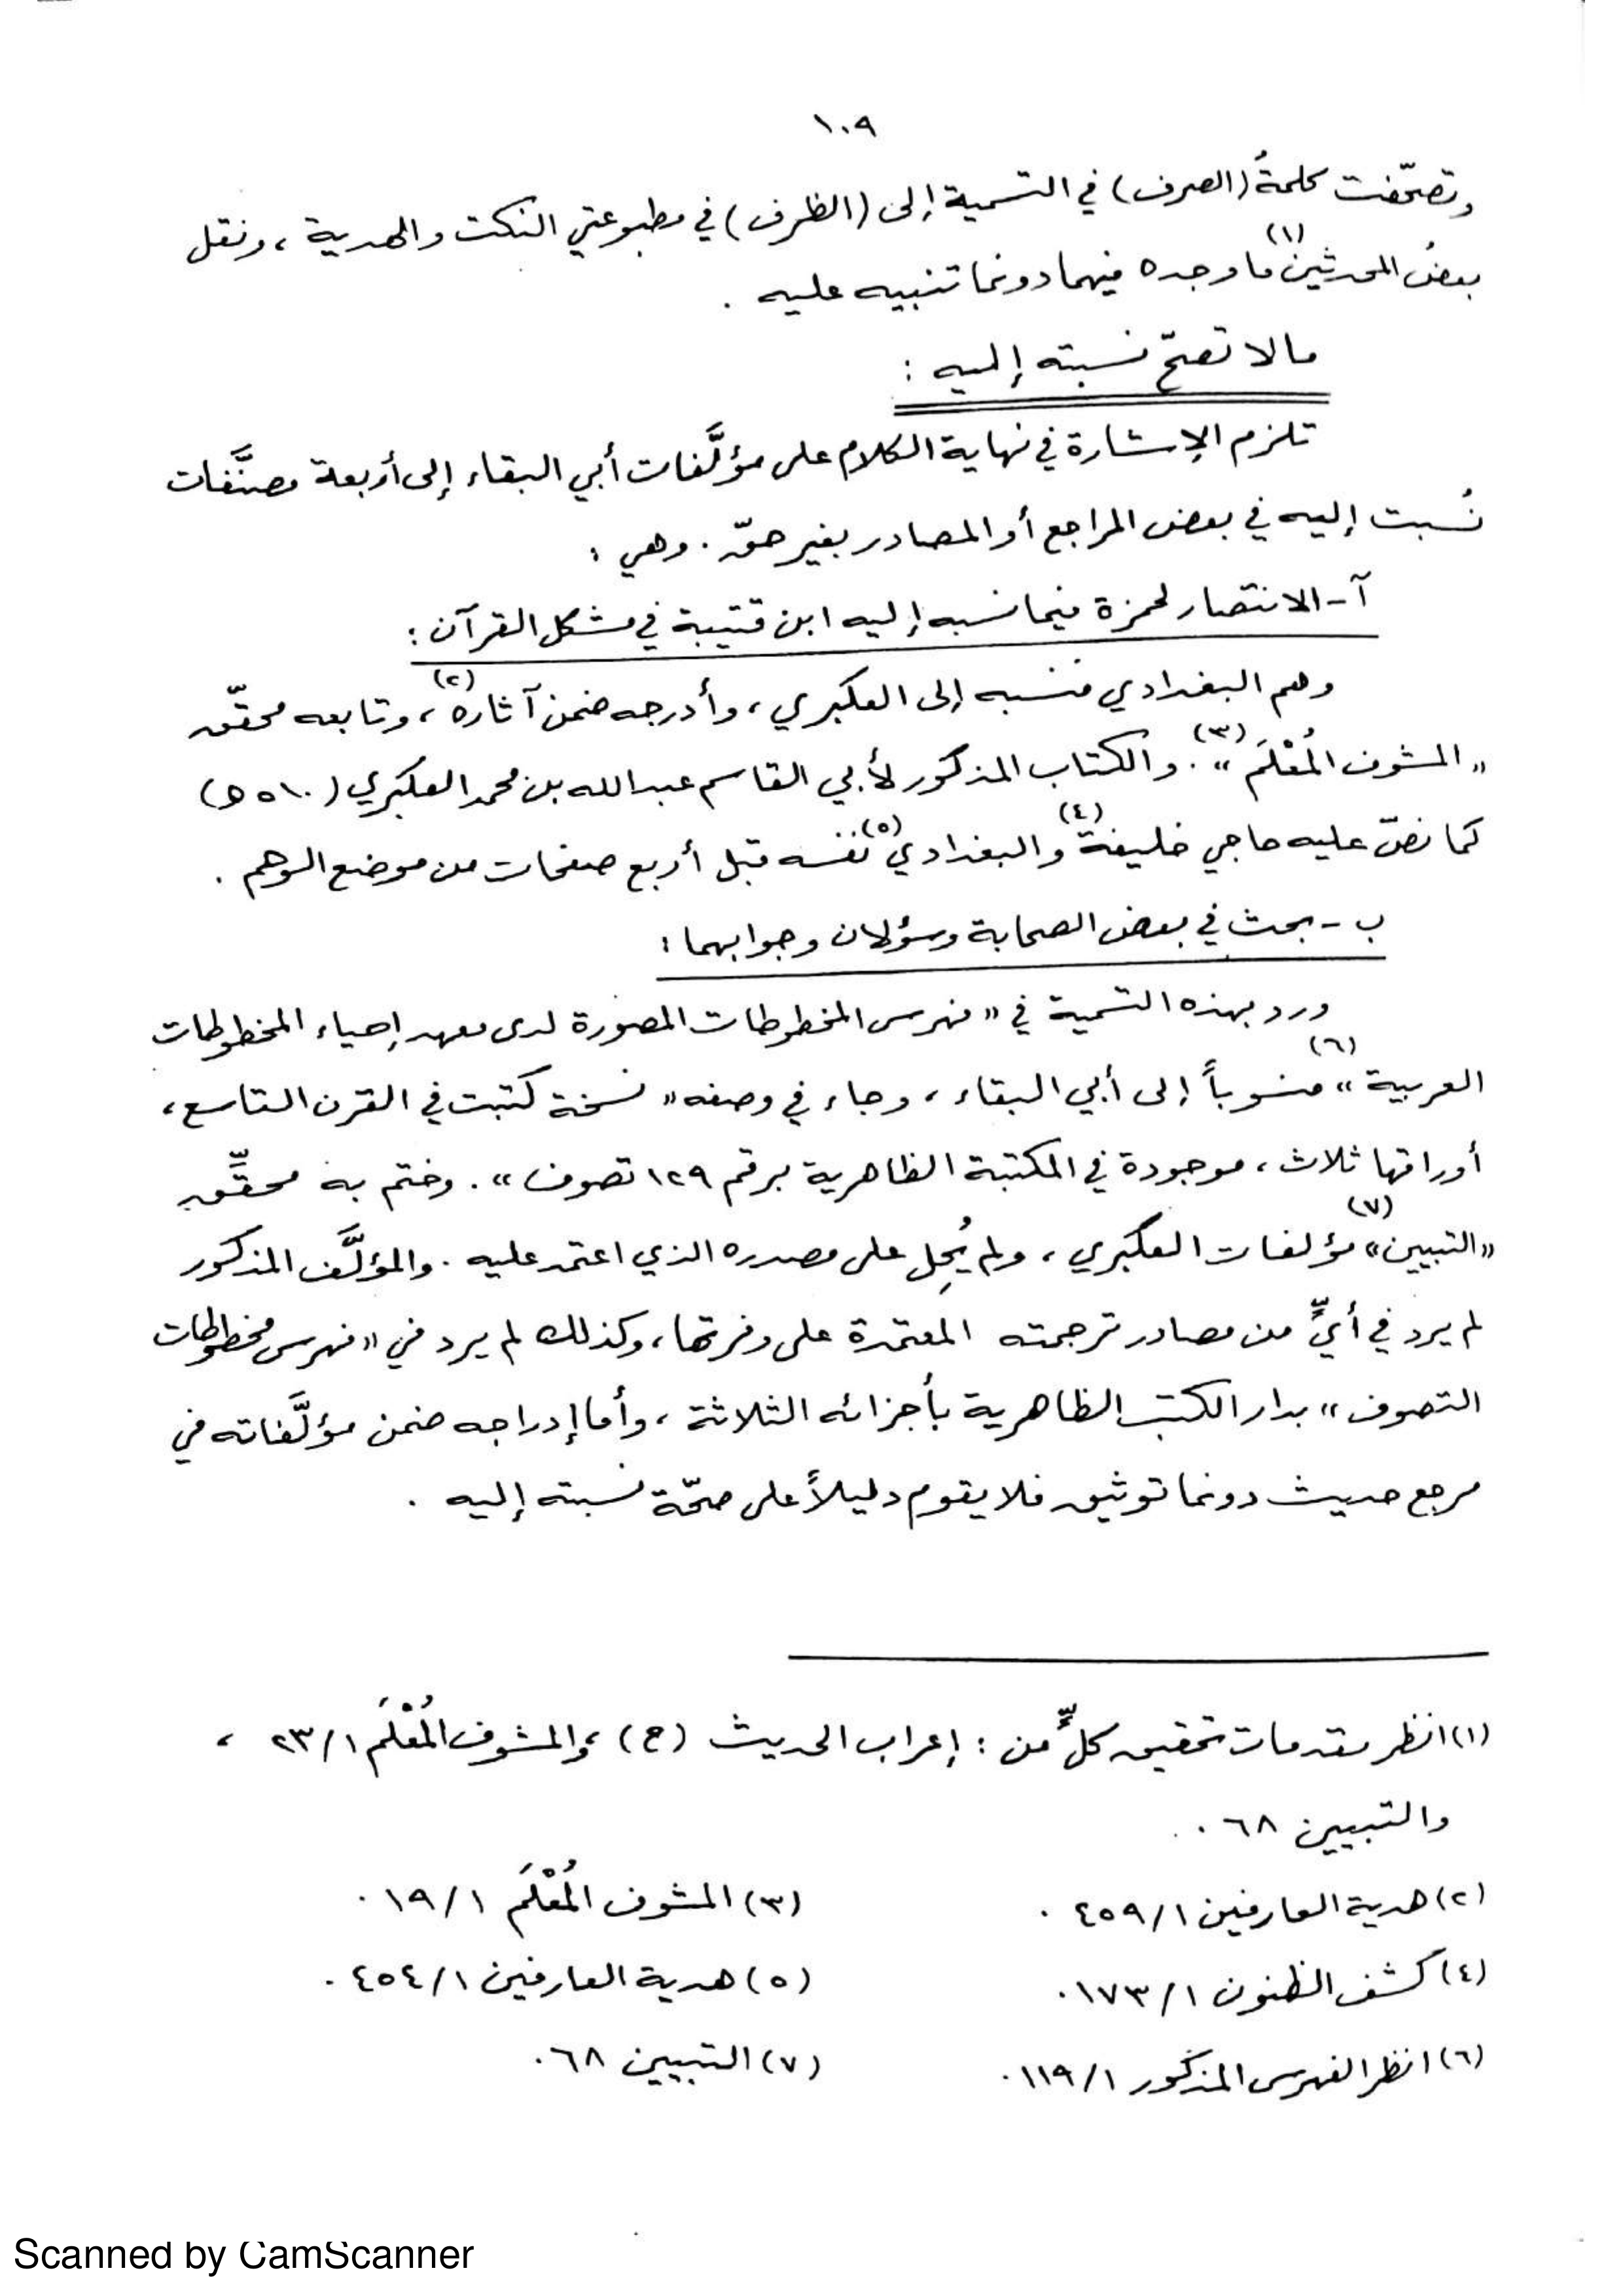 ١٠٩
وتصحّفت كلمةُ (الصرف) في التسمية إلى (الظرف) في مطبوعتي النكت والهدية ، ونقل
بعضُ المحدثين(١) ما وجده فيهما دونما تنبيه عليه .
مالا تصحّ نسبته إليه :
تلزم الإشارة في نهاية الكلام على مؤلَّفات أبي البقاء إلى أربعة مصنَّفات
نُسبت إليه في بعض المراجع أو المصادر بغير حقّ . وهي :
آ - الانتصار لحمزة فيما نسبه إليه ابن قتيبة في مشكل القرآن :
وهم البغدادي فنسبه إلى العكبري ، وأدرجه ضمن آثاره(٢) ، وتابعه محقّق
« المشوف المُعْلَم »(٣) . والكتاب المذكور لأبي القاسم عبد الله بن محمد العكبري ( ٥١٠ ه )
كما نصّ عليه حاجي خليفة(٤) والبغدادي(٥) نفسه قبل أربع صفحات من موضع الوهم .
ب - بحث في بعض الصحابة وسؤلان وجوابهما :
ورد بهذه التسمية في « فهرس المخطوطات المصورة لدى معهد إحياء المخطوطات
العربية »(٦) منسوباً إلى أبي البقاء ، وجاء في وصفه « نسخة كتبت في القرن التاسع ،
أوراقها ثلاث ، موجودة في المكتبة الظاهرية برقم ١٢٩ تصوف » . وختم به محقِّق
« التبيين »(٧) مؤلفات العكبري ، ولم يُحِل على مصدره الذي اعتمد عليه . والمؤلَّف المذكور
لم يرد في أيٍّ من مصادر ترجمته المعتمدة على وفرتها ، وكذلك لم يرد في « فهرس مخطوطات
التصوف » بدار الكتب الظاهرية بأجزائه الثلاثة ، وأما إدراجه ضمن مؤلَّفاته في
مرجع حديث دونما توثيق فلا يقوم دليلاً على صحّة نسبته إليه .
(١) انظر مقدمات تحقيق كلٍّ من : إعراب الحديث (ح) ، والمشوف المُعْلَم ١/ ٢٣ ،
والتبيين ٦٨ .
(٢) هدية العارفين ١/ ٤٥٩ .
(٣) المشوف المُعْلَم ١/ ١٩ .
(٤) كشف الظنون ١/ ١٧٣ .
(٥) هدية العارفين ١/ ٤٥٤ .
(٦) انظر الفهرس المذكور ١/ ١١٩ .
(٧) التبيين ٦٨ .
Scanned by CamScanner